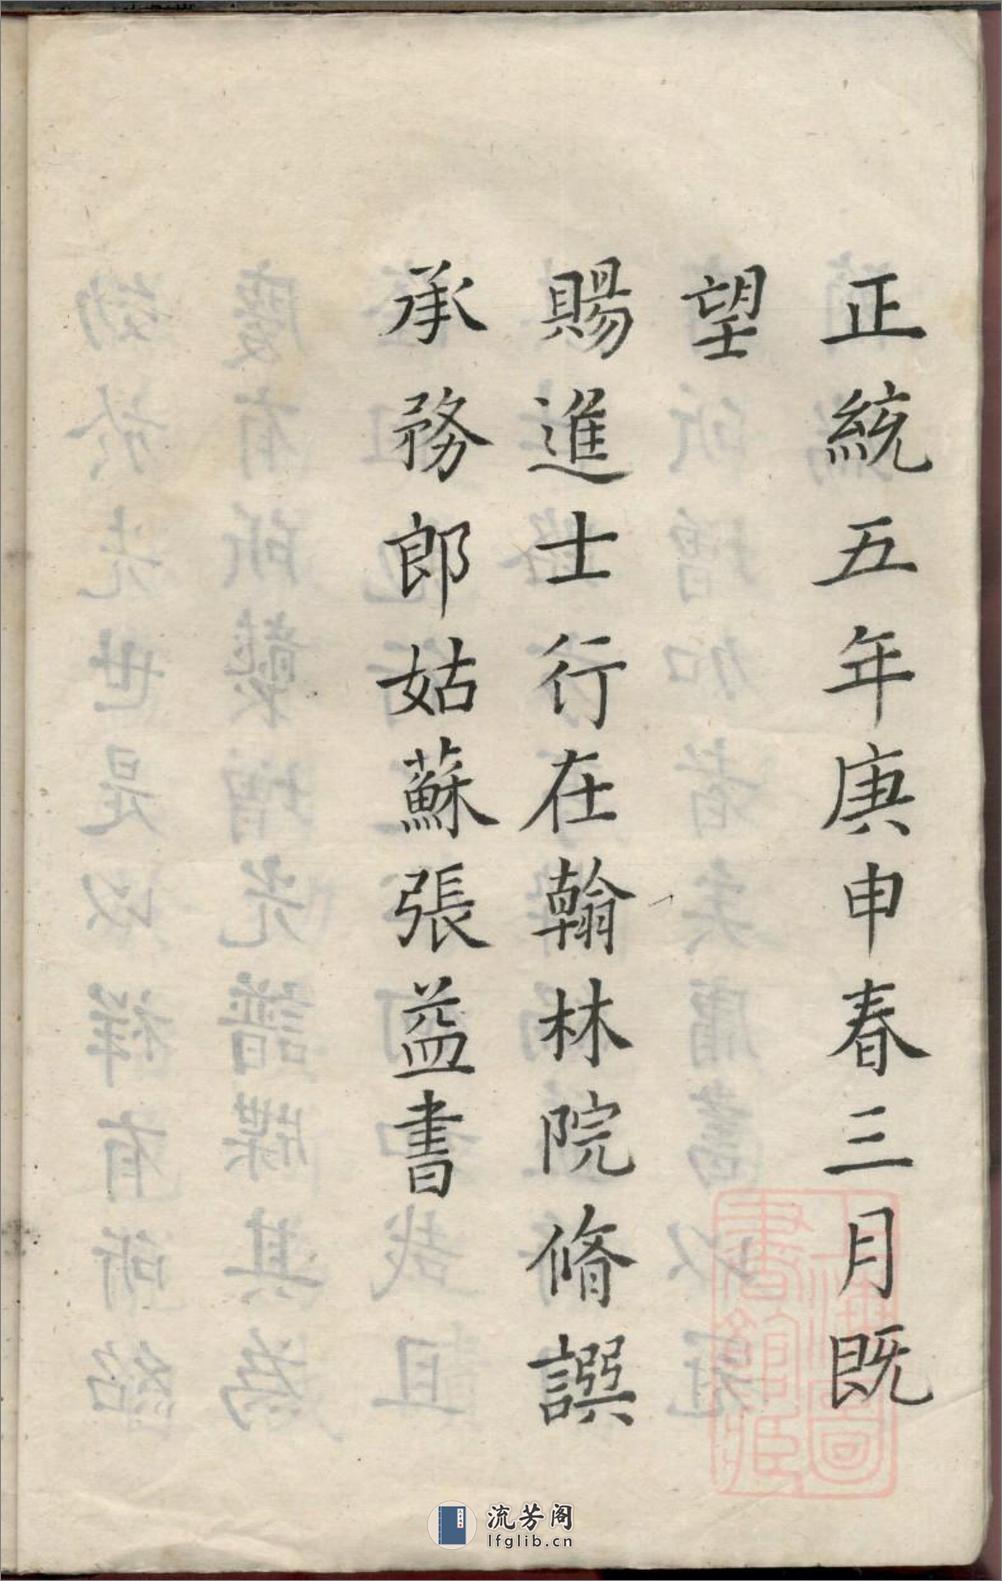 正統五年庚申春三月既
望
賜進士行在翰林院脩譔
承務郎姑蘇張益書
流芳阁
lfglib.cn